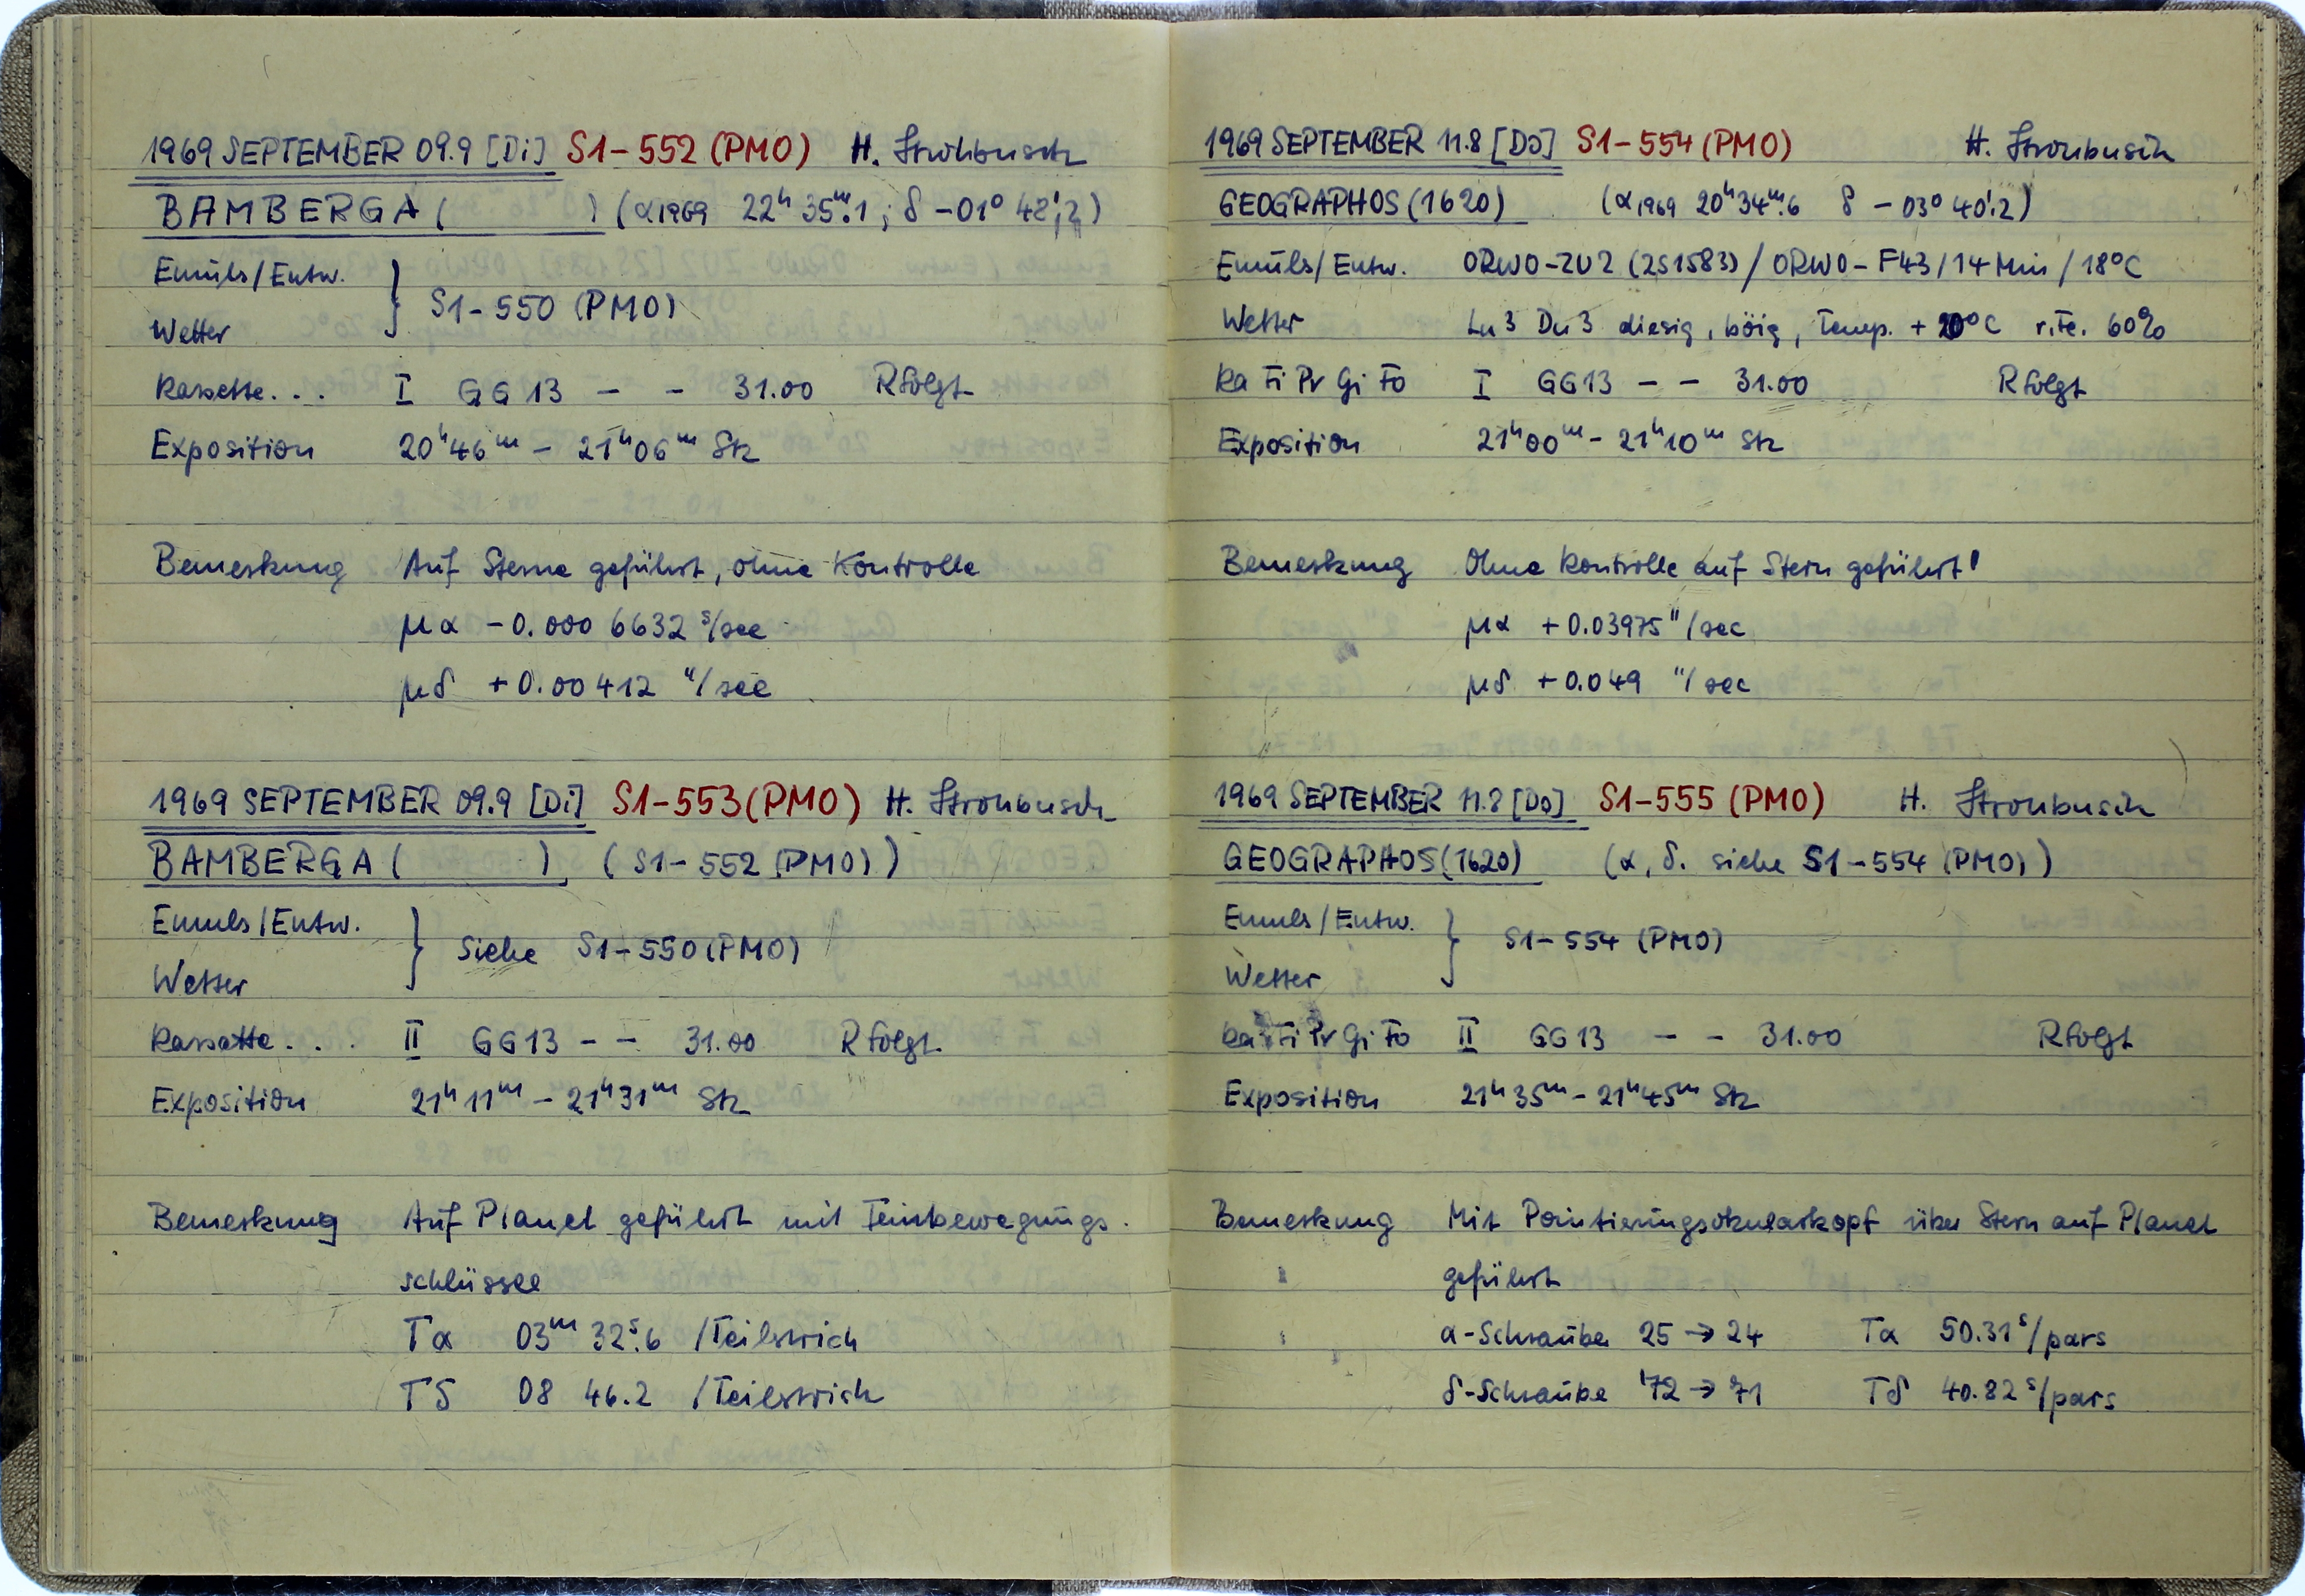 1969 SEPTEMBER 09.9 [Di] S1-552 (PMO) H. Strohbusch
BAMBERGA ( ) (α1969 22h 35m.1 ; δ -01° 42'.2)
Emuls/Entw.
Wetter } S1-550 (PMO)
Kassette... I GG 13 - - 31.00 Rfolgt
Exposition 20h46m - 21h06m Stz
Bemerkung Auf Sterne geführt, ohne Kontrolle
μα -0.000 6632 s/sec
μδ +0.00412 "/sec
1969 SEPTEMBER 09.9 [Di] S1-553 (PMO) H. Strohbusch
BAMBERGA ( ) (S1-552 (PMO))
Emuls/Entw.
Wetter } Siehe S1-550 (PMO)
Kassette... II GG13 - - 31.00 Rfolgt
Exposition 21h11m - 21h31m Stz
Bemerkung Auf Planet geführt mit Feinbewegungs-
schlüssel
Tα 03m 32s.6 /Teilstrich
Tδ 08 46.2 /Teilstrich
1969 SEPTEMBER 11.8 [Do] S1-554 (PMO) H. Strohbusch
GEOGRAPHOS (1620) (α1969 20h34m.6 δ -03° 40'.2)
Emuls/Entw. ORWO-ZU2 (251583) / ORWO-F43 / 14 Min / 18°C
Wetter Lu3 Du3 diesig, böig, Temp. +20°C r.Fe. 60%
Ka Fi Pr Gi Fo I GG13 - - 31.00 Rfolgt
Exposition 21h00m - 21h10m Stz
Bemerkung Ohne Kontrolle auf Stern geführt!
μα +0.03975 "/sec
μδ +0.049 "/sec
1969 SEPTEMBER 11.8 [Do] S1-555 (PMO) H. Strohbusch
GEOGRAPHOS (1620) (α, δ. siehe S1-554 (PMO))
Emuls/Entw.
Wetter } S1-554 (PMO)
Ka Fi Pr Gi Fo II GG13 - - 31.00 Rfolgt
Exposition 21h35m - 21h45m Stz
Bemerkung Mit Pointierungsokularkopf über Stern auf Planet
geführt
α-Schraube 25 → 24 Tα 50.31s/pars
δ-Schraube 72 → 71 Tδ 40.82s/pars